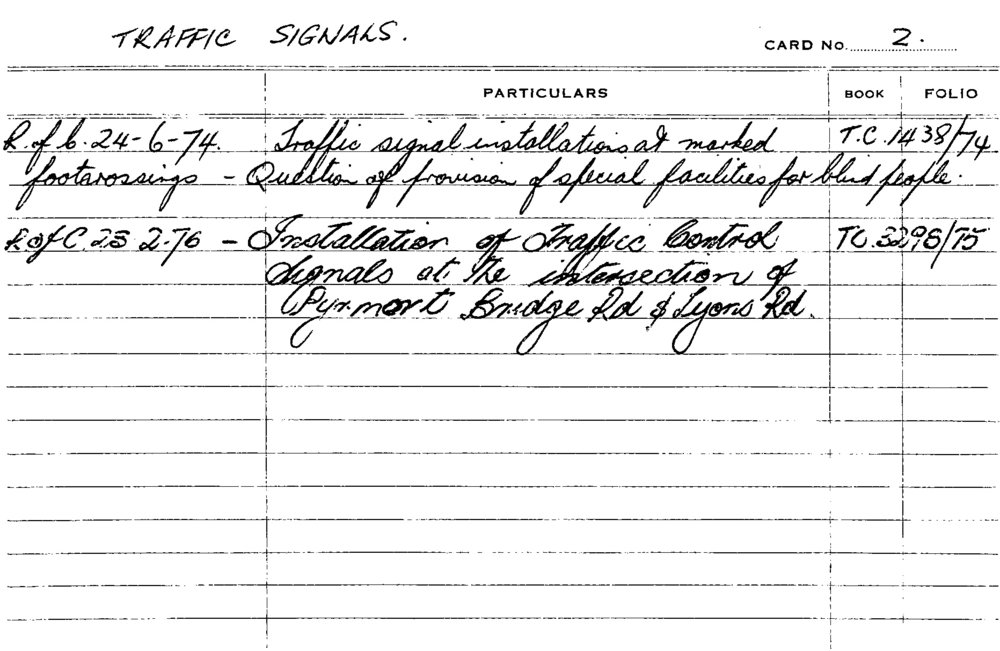 TRAFFIC SIGNALS. CARD No. 2.
PARTICULARS BOOK FOLIO
R. of C. 24-6-74. Traffic signal installations at marked T.C. 1438/74
footcrossings - Question of provision of special facilities for blind people.
R of C. 23 2-76 - Installation of Traffic Control TC. 3298/75
Signals at the intersection of
Pyrmont Bridge Rd & Lyons Rd.